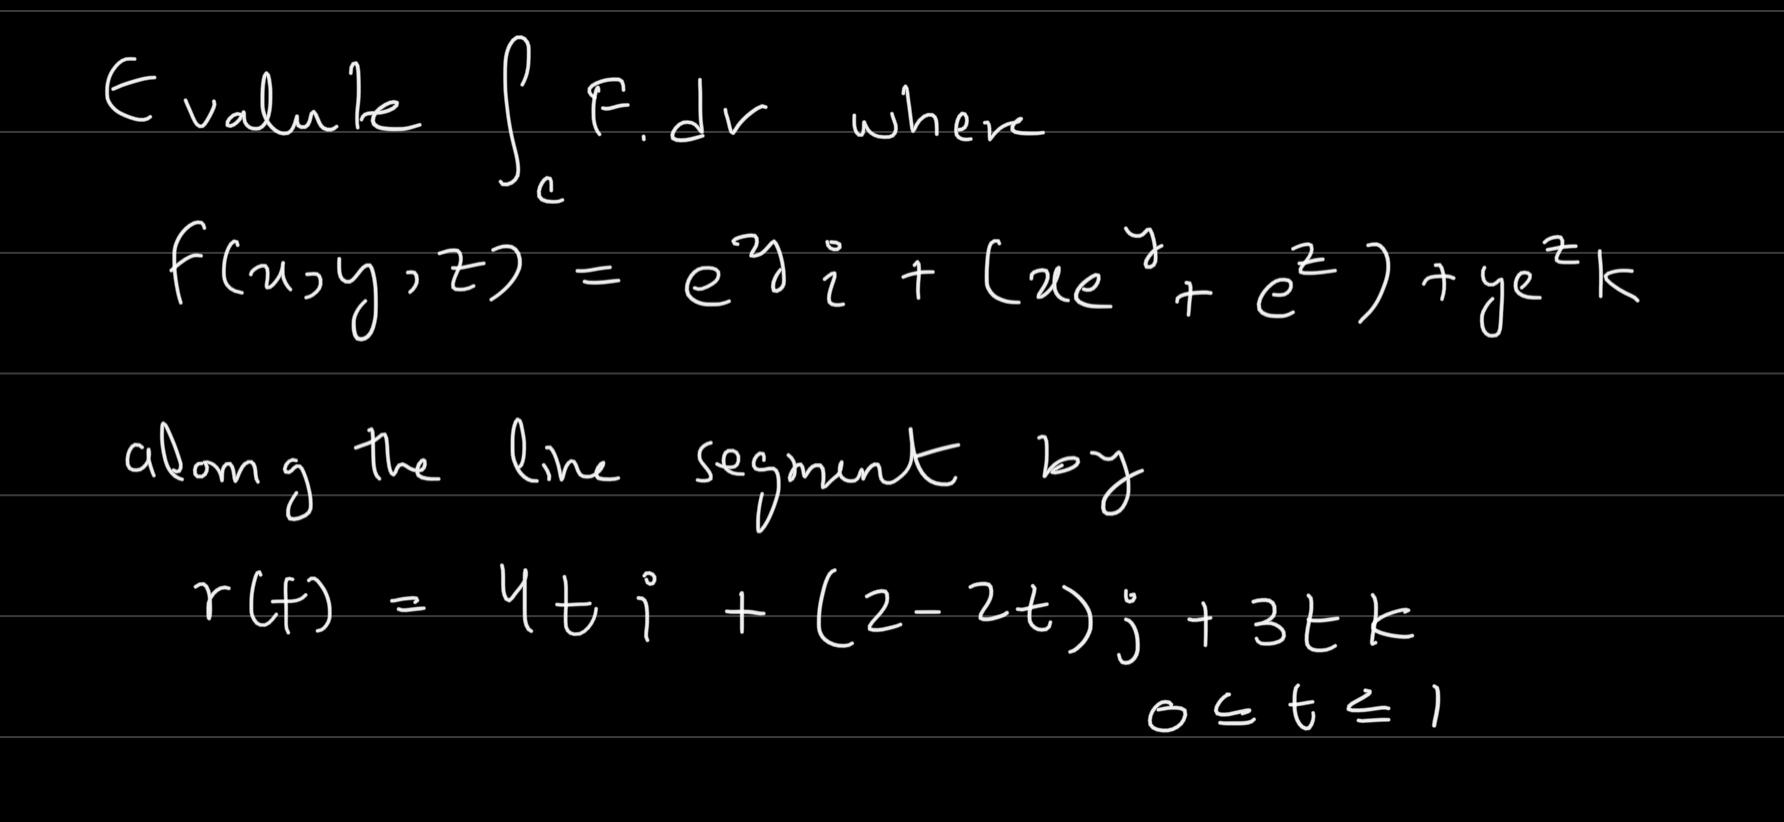 Evalute ∫_c F.dr where
f(x,y,z) = e^y i + (xe^y + e^z) + ye^z k
along the line segment by
r(t) = 4t i + (2-2t)j + 3t k
0 ≤ t ≤ 1